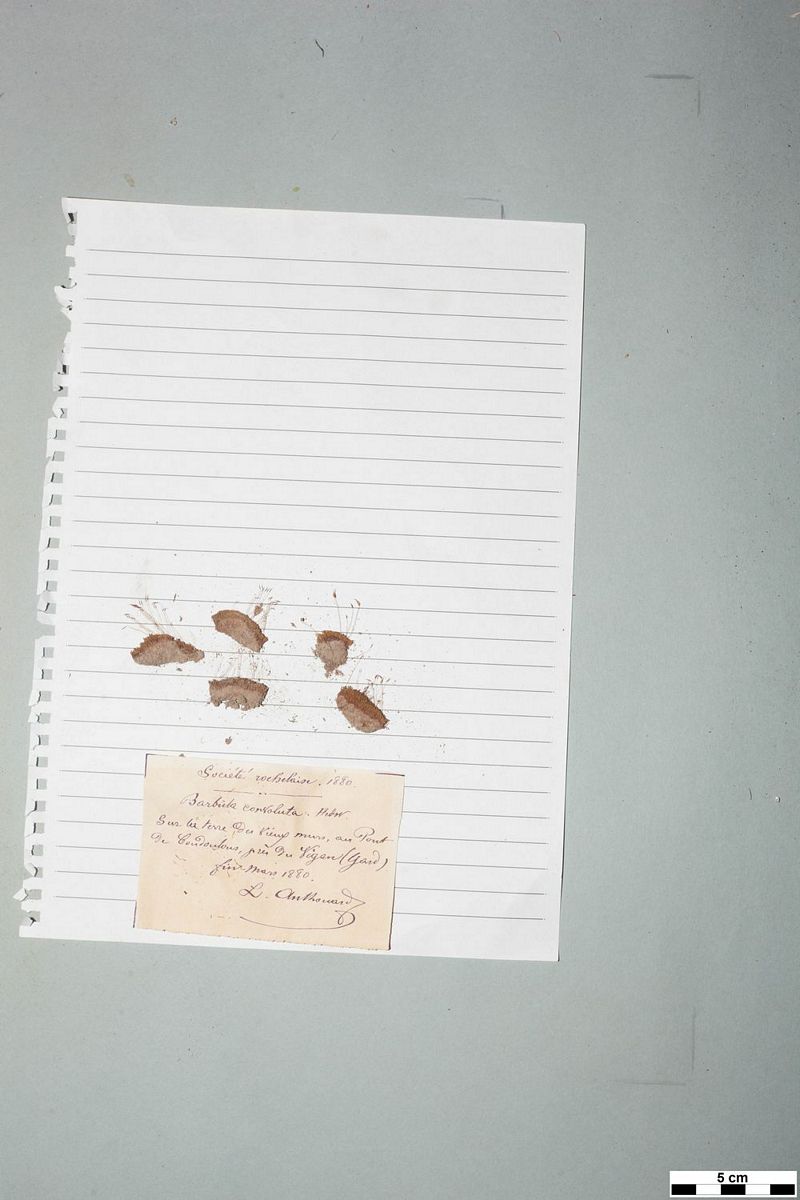 Société rochelaise. 1880.
Barbula convoluta. Hedw
Sur la terre des vieux murs, au Pont
de Coudoulous, près du Vigan (Gard)
fin Mars 1880.
L. Anthouard
5 cm